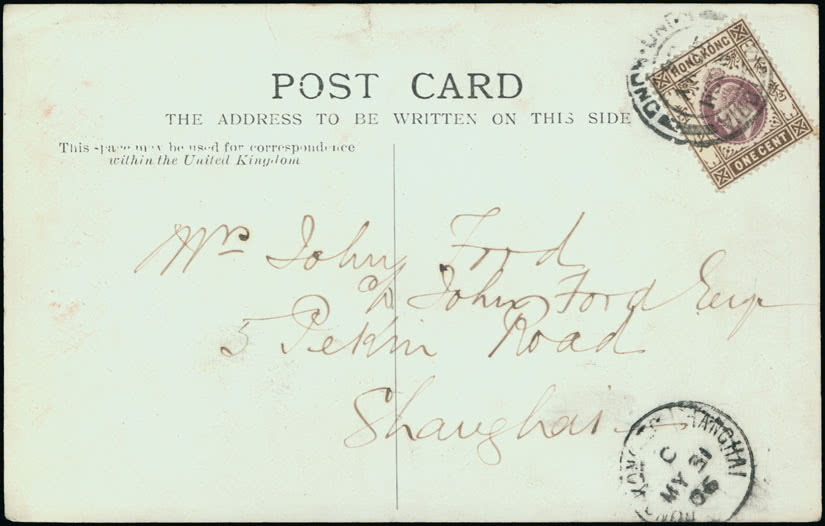 POST CARD
THE ADDRESS TO BE WRITTEN ON THIS SIDE
This space may be used for correspondence
within the United Kingdom
HONG KONG
ONE CENT
Mrs John Ford
c/o John Ford Esqr
5 Pekin Road
Shanghai
SHANGHAI
C
MY 31
06